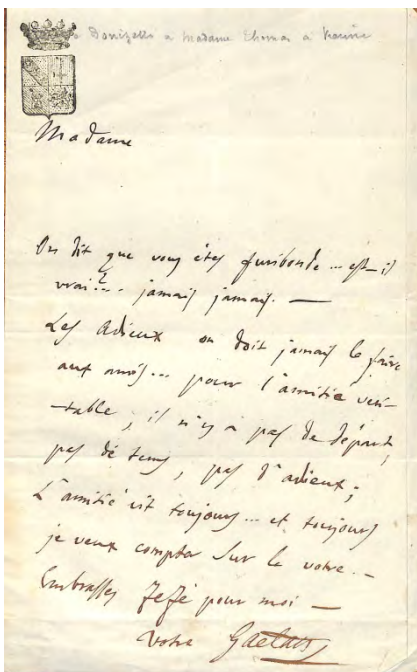 a Donizetti a Madame Thomas a Vienne
Madame
On dit que vous êtes furibonde ... est-il
vrai?.. jamais jamais. —
Les Adieux on doit jamais le faire
aux amis... pour l'amitié veri-
-table; il n'y a pas de départ,
pas de tems, pas d'adieux;
L'amitié est toujours... et toujours
je veux compter sur la votre. —
Embrasses Fefé pour moi —
Votre Gaetano